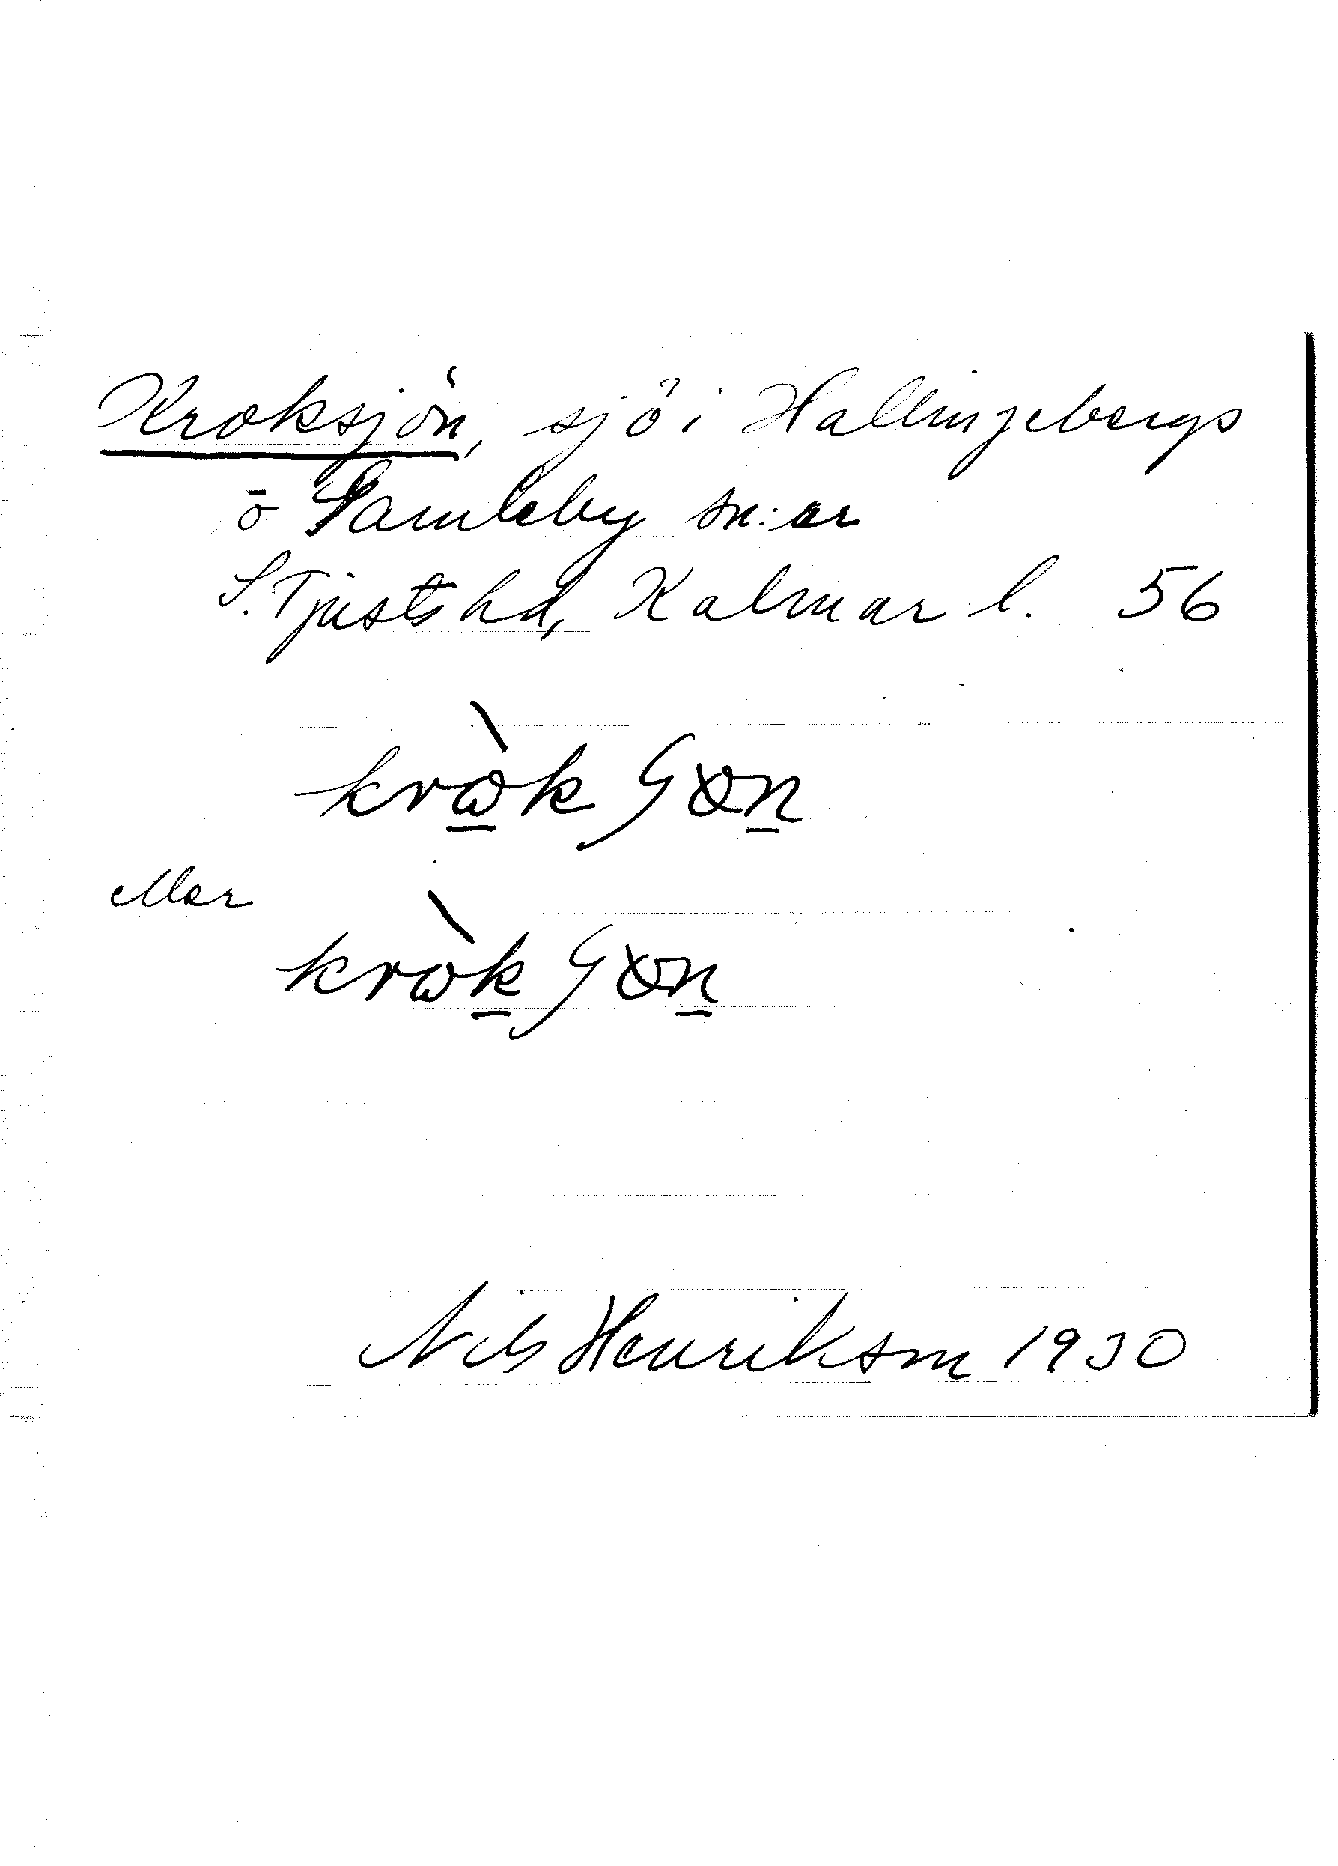 Kroksjön, sjö i Hallingebergs
o Gamleby sn:ar
S. Tjusts hd, Kalmar l. 56
eller
Nils Henrikson 1930